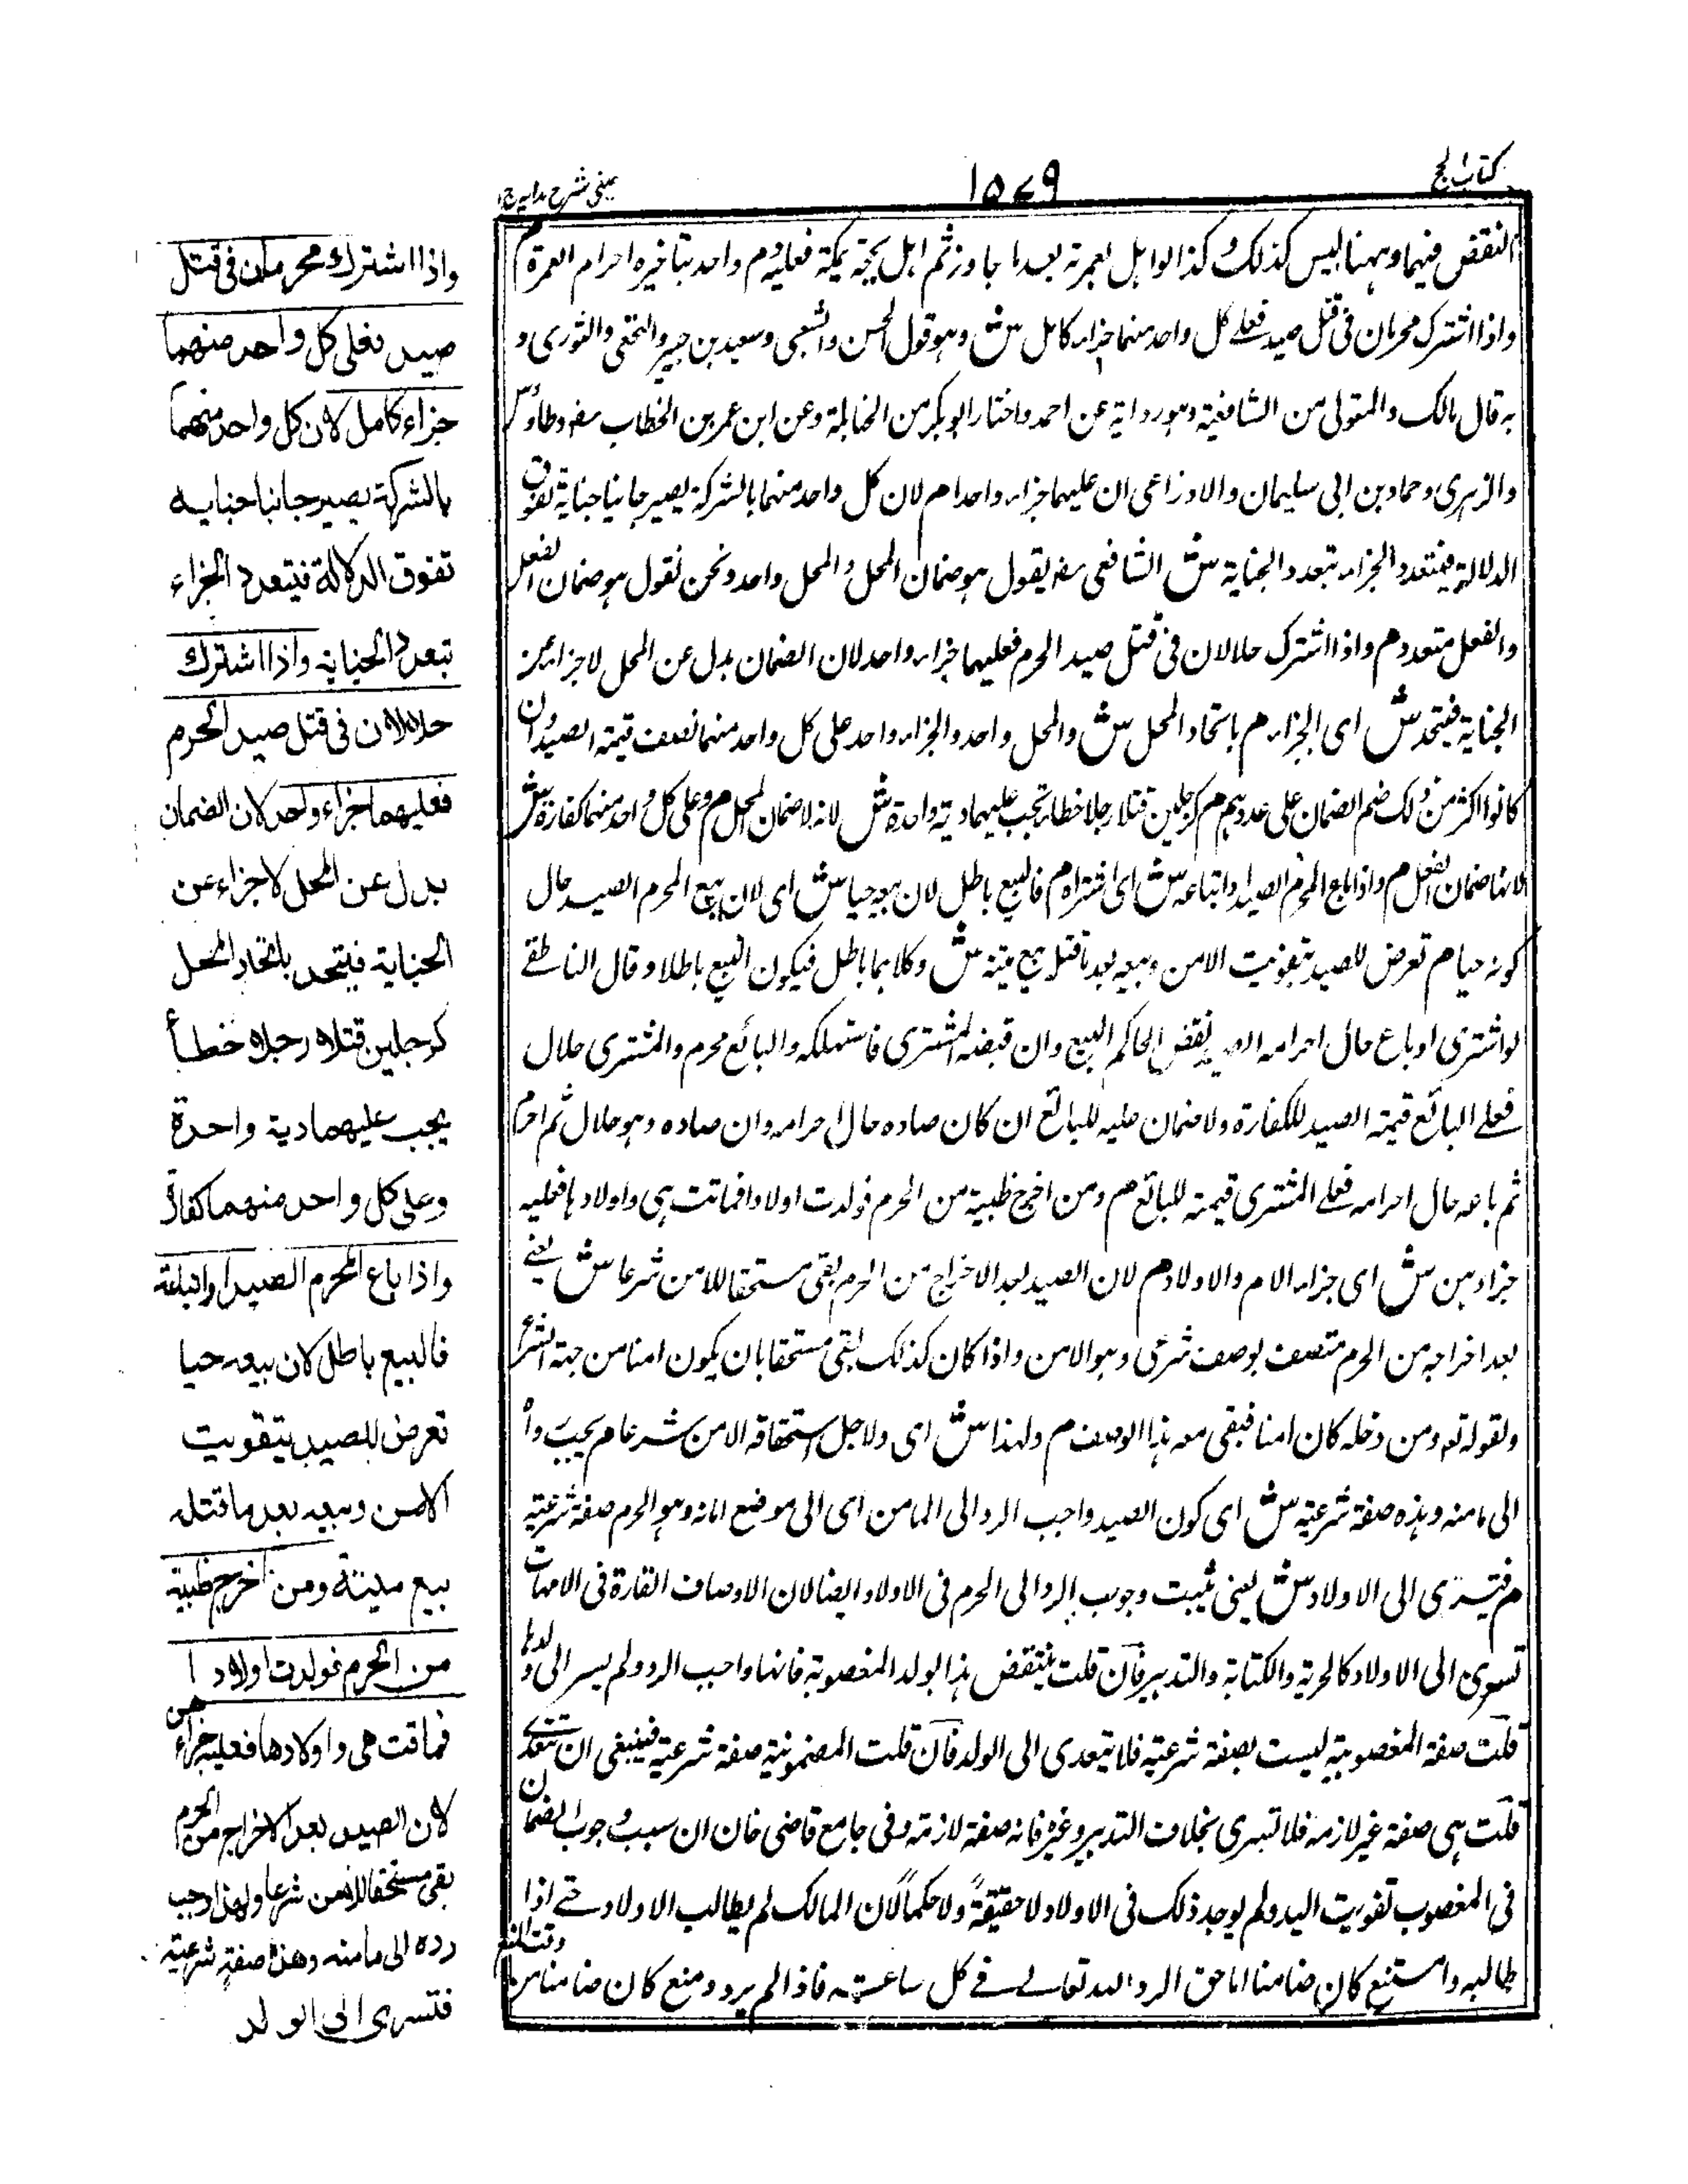 كتاب الحج
١٥٧٩
عینی شرح هدایه ج ۱
النقض فيهما وههنا ليس كذلك وكذا لو اهل بعمرة بعد ما جاوز ثم اهل بحجة بمكة فعليه دم واحد بتاخيره احرام العمرة م
واذا اشترك محرمان فى قتل صيد فعلے كل واحد منهما جزاء كامل ش وهو قول الحسن والشعبى وسعيد بن جبير والنخعى والثورى و
به قال مالك والمتولى من الشافعية وهو رواية عن احمد واختار ابو بكر من الحنابلة وعن ابن عمر بن الخطاب رضہ وطاؤس
والزهرى وحماد بن ابى سليمان والاوزاعى ان عليهما جزاء واحدا م لان كل واحد منهما بالشركة يصير جانيا جناية تفوق
الدلالة فيتعدد الجزاء بتعدد الجناية ش الشافعى رضہ يقول هو ضمان المحل والمحل واحد ونحن نقول هو ضمان الفعل
والفعل متعدد م واذا اشترك حلالان فى قتل صيد الحرم فعليهما جزاء واحد لان الضمان بدل عن المحل لا جزاء عن
الجناية فيتحد ش اى الجزاء م باتحاد المحل ش والمحل واحد والجزاء واحد على كل واحد منهما نصف قيمة الصيد وان
كانوا اكثر من ذلك ضم الضمان على عددهم م كرجلين قتلا رجلا خطاء تجب عليهما دية واحدة ش لانه لا ضمان المحل م وعلى كل واحد منهما كفارة ش
لانها ضمان الفعل م واذا باع المحرم الصيد او ابتاعه ش اى اشتراه م فالبيع باطل لان بيعه حيا ش اى لان بيع المحرم الصيد حال
كونه حيا م تعرض للصيد بتفويت الامن وبيعه بعد ما قتل بيع ميتة ش وكلاهما باطل فيكون البيع باطلا وقال الناطقے
لو اشترى او باع حال احرامه الصيد نقض الحاكم البيع وان قبضه المشترى فاستهلكه والبائع محرم والمشترى حلال
فعلے البائع قيمة الصيد للكفارة ولا ضمان عليه للبائع ان كان صاده حال احرامه وان صاده وهو حلال ثم احرم
ثم باعه حال احرامه فعلے المشترى قيمته للبائع م ومن اخرج ظبية من الحرم فولدت اولادا فماتت هى واولادها فعليه
جزاؤهن ش اى جزاء الام والاولاد م لان الصيد بعد الاخراج من الحرم بقى مستحقا للامن شرعا ش يعنے
بعد اخراجه من الحرم متصف بوصف شرعى وهو الامن واذا كان كذلك بقى مستحقا بان يكون امنا من جهة الشرع
ولقوله تعہ ومن دخله كان امنا فبقى معه هذا الوصف م ولهذا ش اى ولاجل استحقاقه الامن شرعا م يجب رده
الى مامنه وهذه صفة شرعية ش اى كون الصيد واجب الرد الى المامن اى الى موضع امانه وهو الحرم صفة شرعية
م فتسرى الى الاولاد ش يعنى يثبت وجوب الرد الى الحرم فى الاولاد ايضا لان الاوصاف القارة فى الامهات
تسرى الى الاولاد كالحرية والكتابة والتدبير فان قلت ينتقض هذا بولد المغصوبة فانها واجب الرد ولم يسر الى ولدها
قلت صفة المغصوبية ليست بصفة شرعية فلا تتعدى الى الولد فان قلت المضمونية صفة شرعية فينبغى ان تتعدے
قلت هى صفة غير لازمة فلا تسرى بخلاف التدبير وغيره فانه صفة لازمة وفى جامع قاضى خان ان سبب وجوب الضمان
فى المغصوب تفويت اليد ولم يوجد ذلك فى الاولاد لا حقيقة ولا حكما لان المالك لم يطالب الاولاد حتے اذا
طالبه وامتنع كان ضامنا اما حق الرد لله تعالے فے كل ساعة فاذا لم يرد ومنع كان ضامنا من وقت المنع
واذا اشترك محرمان فى قتل
صيد فعلى كل واحد منهما
جزاء كامل لان كل واحد منهما
بالشركة يصير جانيا جناية
تفوق الدلالة فيتعدد الجزاء
بتعدد الجناية واذا اشترك
حلالان فى قتل صيد الحرم
فعليهما جزاء واحد لان الضمان
بدل عن المحل لا جزاء عن
الجناية فيتحد باتحاد المحل
كرجلين قتلا رجلا خطأ
يجب عليهما دية واحدة
وعلى كل واحد منهما كفارة
واذا باع المحرم الصيد او ابتاعه
فالبيع باطل لان بيعه حيا
تعرض للصيد بتفويت
الامن وبيعه بعد ما قتله
بيع ميتة ومن اخرج ظبية
من الحرم فولدت اولادا
فماتت هى واولادها فعليه جزاءهن
لان الصيد بعد الاخراج من الحرم
بقى مستحقا للامن شرعا ولهذا وجب
رده الى مأمنه وهذه صفة شرعية
فتسرى الى الولد